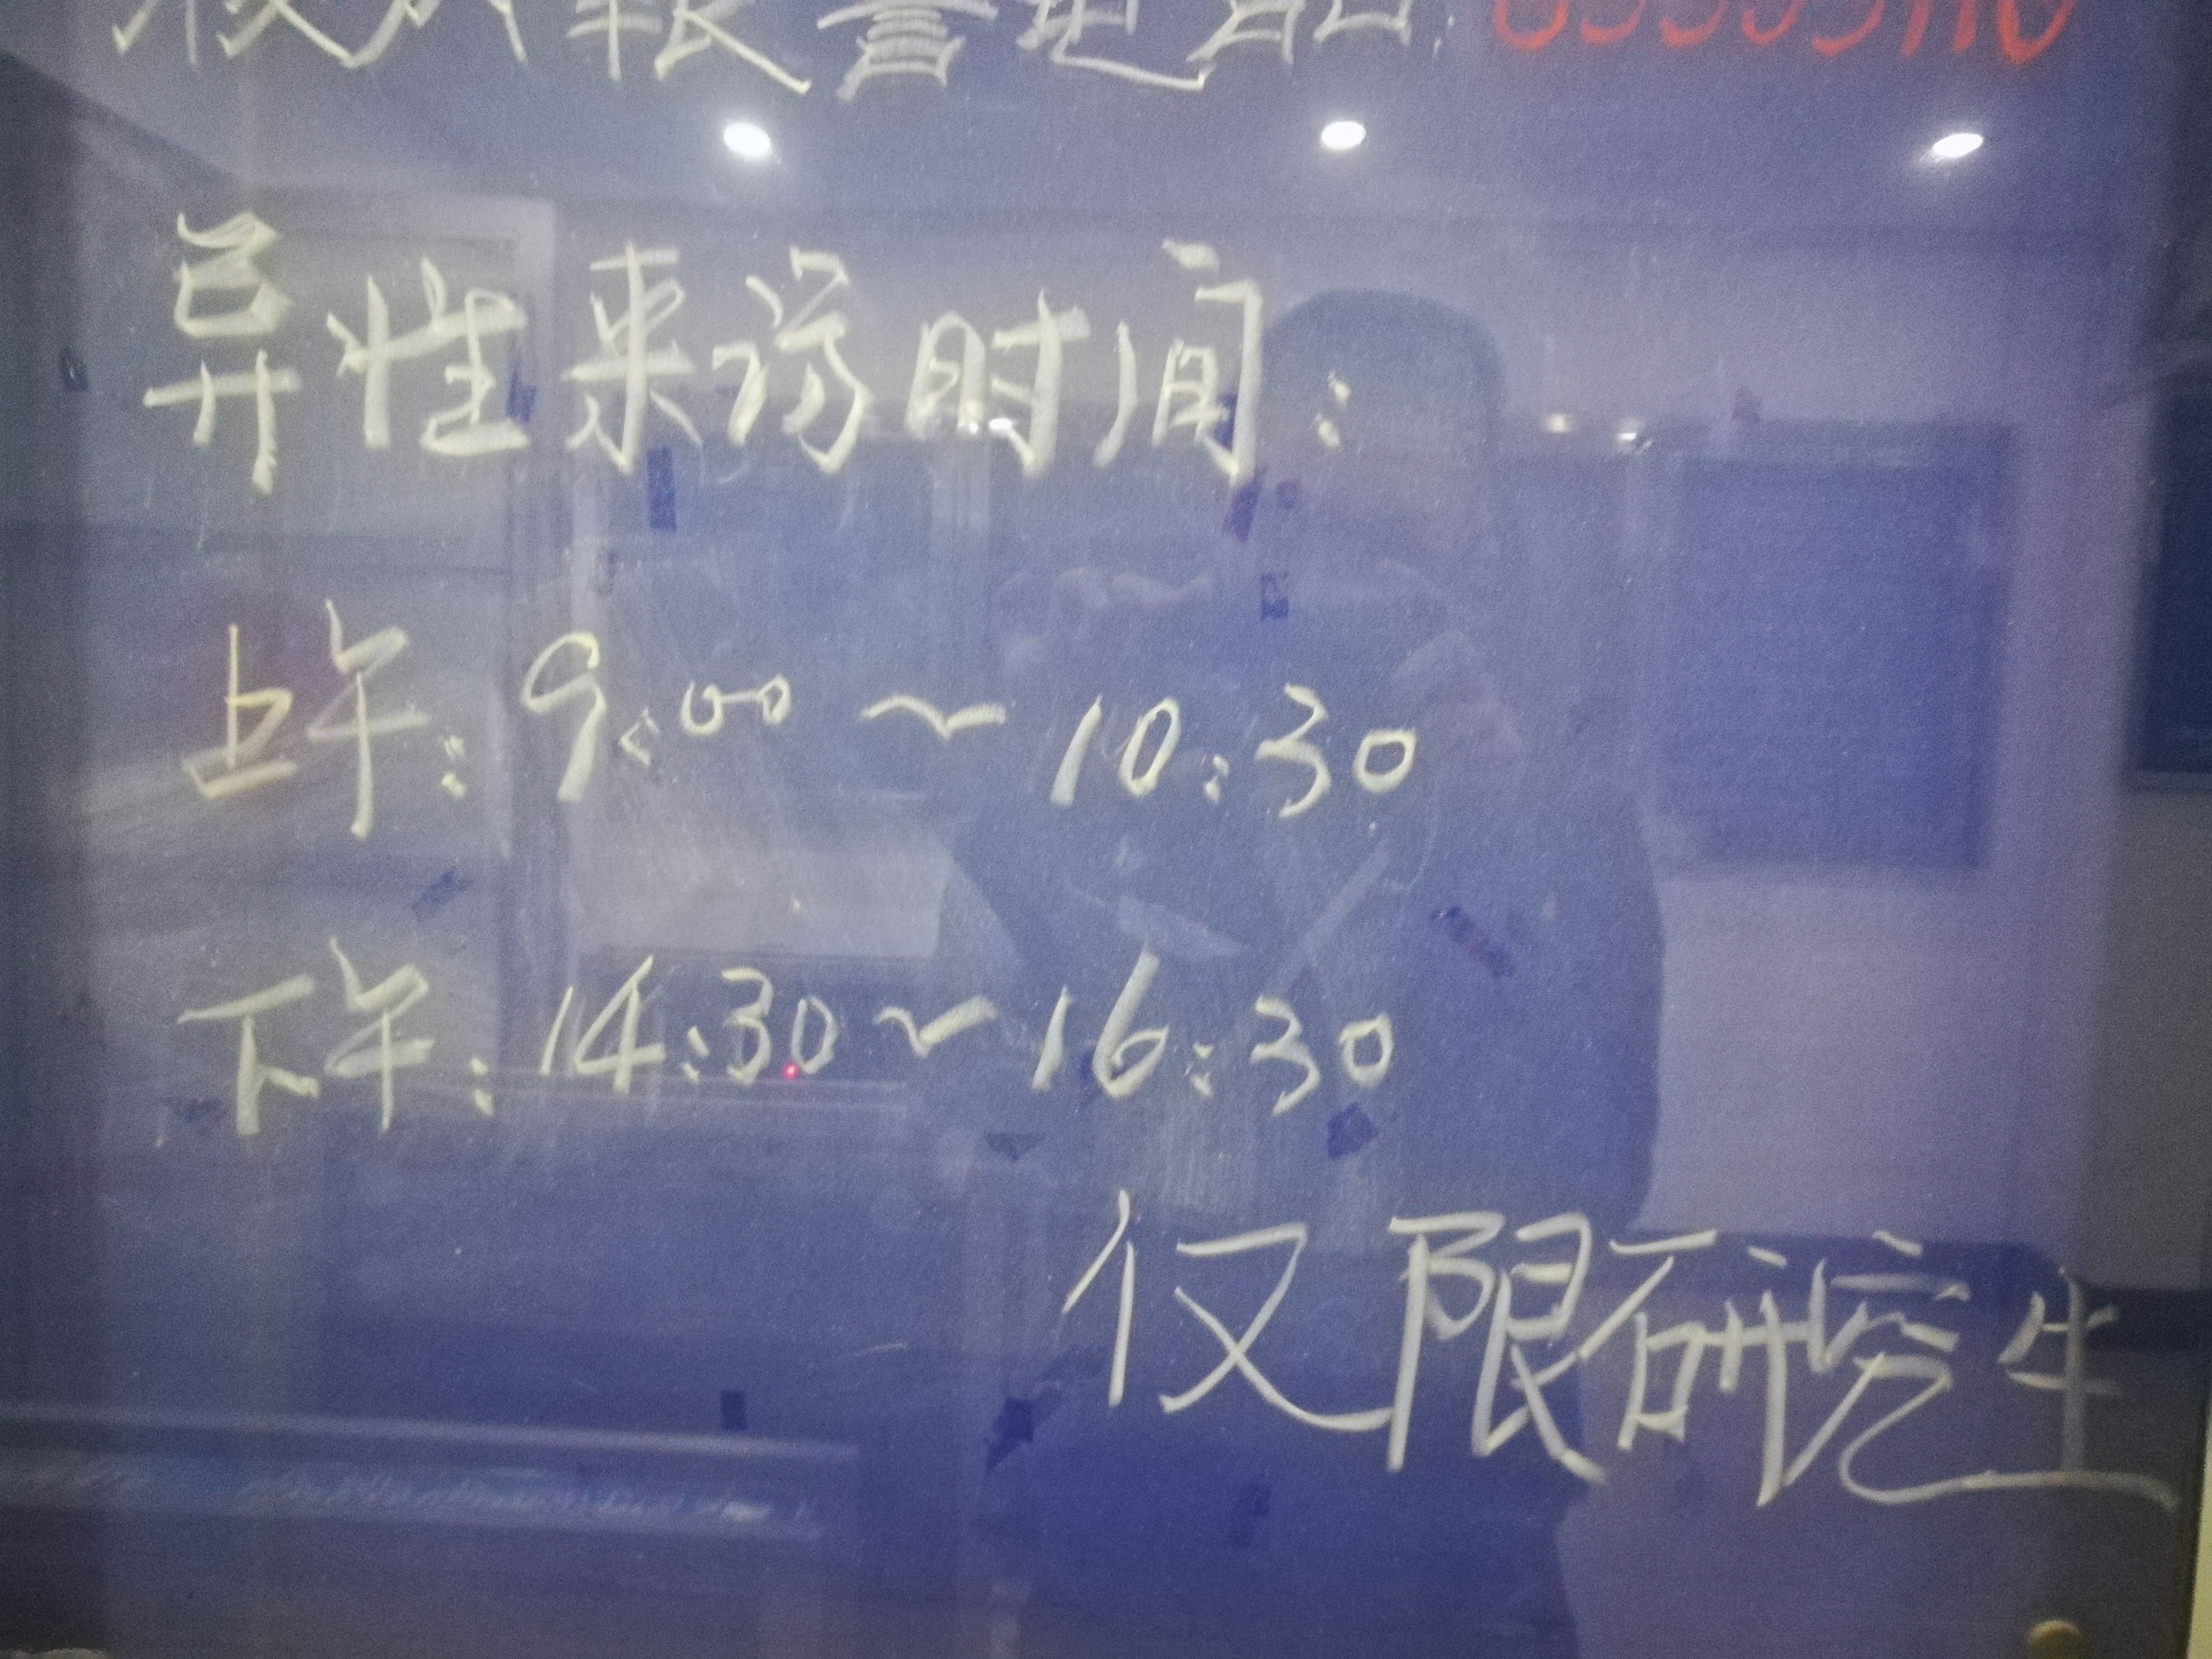 校内报警电话
异性来访时间:
上午:9:00~10:30
下午:14:30~16:30
仅限研究生